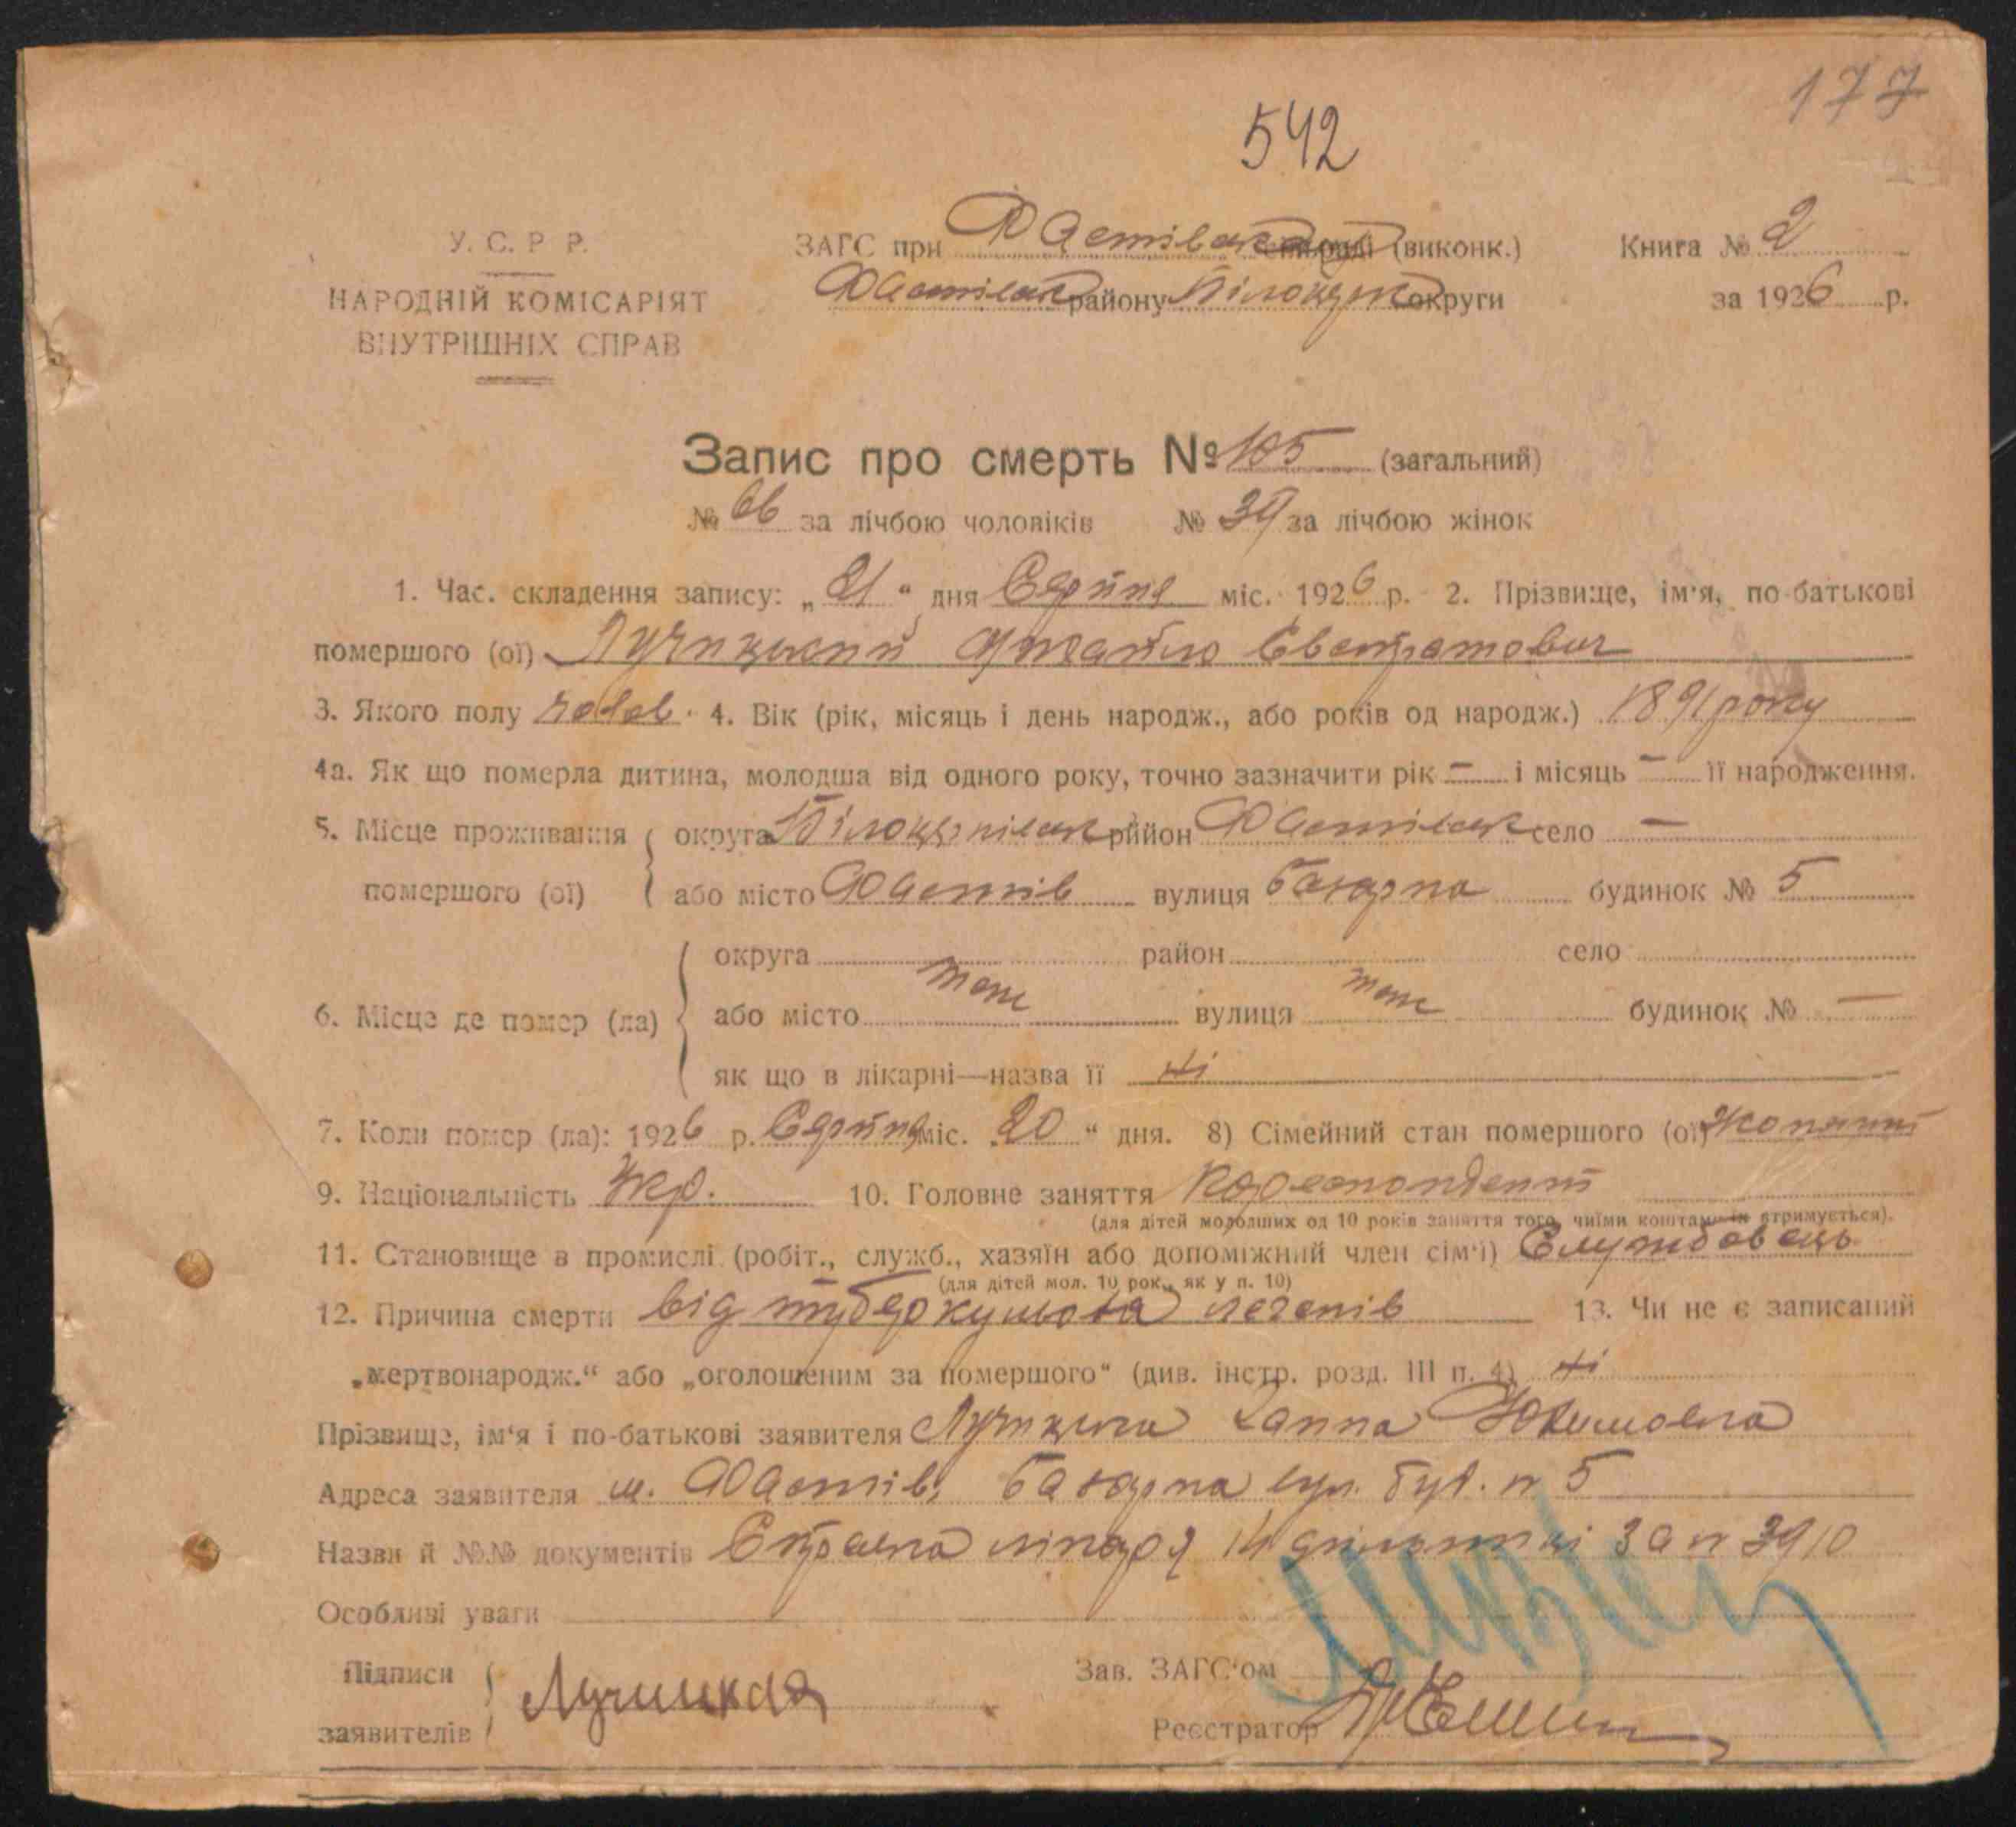 177
542
У. С. Р Р.
НАРОДНІЙ КОМІСАРІЯТ
ВНУТРІШНІХ СПРАВ
ЗАГС при Фастівськ (виконк.)
Фастівськ району Білоцерк округи
Книга № 2
за 1926 р.
Запис про смерть № 105 (загальний)
№ 66 за лічбою чоловіків № 39 за лічбою жінок
1. Час. складення запису: „21“ дня Серпня міс. 1926 р. 2. Прізвище, ім'я, по-батькові
помершого (ої) Лучицький Михайло Євстратович
3. Якого полу чолов. 4. Вік (рік, місяць і день народж., або років од народж.) 1891 року
4а. Як що померла дитина, молодша від одного року, точно зазначити рік — і місяць — її народження.
5. Місце проживання округа Білоцерківськ район Фастівськ село —
помершого (ої) або місто Фастів вулиця Базарна будинок № 5
округа район село
6. Місце де помер (ла) або місто теж вулиця теж будинок № —
як що в лікарні—назва її ні
7. Коли помер (ла): 1926 р. Серпня міс. „20“ дня. 8) Сімейний стан помершого (ої) жонатий
9. Національність Укр. 10. Головне заняття Кореспондент
(для дітей молодших од 10 років заняття того, чиїми коштами їх утримується).
11. Становище в промислі (робіт., служб., хазяїн або допоміжний член сім'ї) Службовець
(для дітей мол. 10 рок., як у п. 10)
12. Причина смерти від туберкульоза легенів 13. Чи не є записаний
„мертвонародж.“ або „оголошеним за помершого“ (див. інстр. розд. III п. 4) ні
Прізвище, ім'я і по-батькові заявителя Лучицька Ганна Юхимовна
Адреса заявителя м. Фастів, Базарна вул. буд. № 5
Назви й №№ документів Справка лікаря 14 дільниці за № 3910
Особливі уваги
Підписи
заявителів Лучицкая
Зав. ЗАГС'ом
Реєстратор